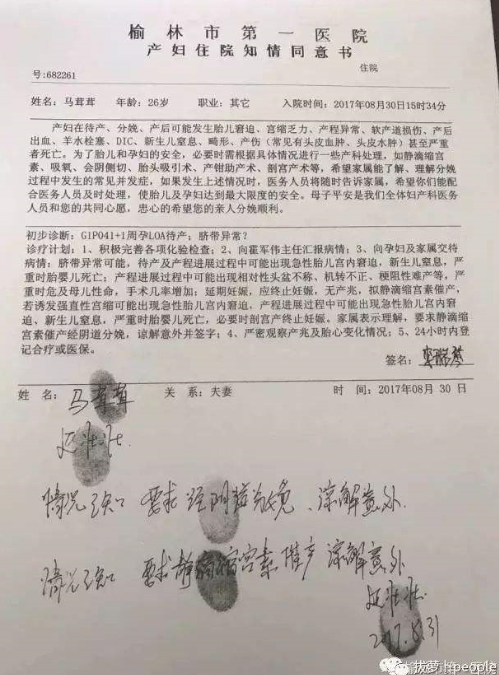 榆林市第一医院
产妇住院知情同意书
号:682261
住院
姓名:马茸茸 年龄:26岁 职业:其它 入院时间:2017年08月30日15时34分
产妇在待产、分娩、产后可能发生胎儿窘迫、宫缩乏力、产程异常、软产道损伤、产后
出血、羊水栓塞、DIC、新生儿窒息、畸形、产伤(常见有头皮血肿、头皮水肿)甚至严重
者死亡。为了胎儿和孕妇的安全,必要时需根据具体情况进行一些产科处理,如静滴缩宫
素、吸氧、会阴侧切、胎头吸引术、产钳助产术、剖宫产术等,希望家属能了解、理解分娩
过程中发生的常见并发症。如果发生上述情况时,医务人员将随时告诉家属,希望你们能配
合医务人员及时处理,使胎儿及孕妇达到最大限度的安全。母子平安是我们全体妇产科医务
人员和您的共同心愿,忠心的希望您的亲人分娩顺利。
初步诊断:G1P041+1周孕LOA待产;脐带异常?
诊疗计划:1、积极完善各项化验检查;2、向霍军伟主任汇报病情;3、向孕妇及家属交待
病情:脐带异常可能,待产及产程进展过程中可能出现急性胎儿宫内窘迫,新生儿窒息,严
重时胎婴儿死亡;产程进展过程中可能出现相对性头盆不称、机转不正、梗阻性难产等,严
重时危及母儿性命,手术儿率增加;延期妊娠,应终止妊娠,无产兆,拟静滴缩宫素催产,
若诱发强直性宫缩可能出现急性胎儿宫内窘迫,产程进展过程中可能出现急性胎儿宫内窘
迫、新生儿窒息,严重时胎婴儿死亡,必要时剖宫产终止妊娠,家属表示理解,要求静滴缩
宫素催产经阴道分娩,谅解意外并签字;4、严密观察产兆及胎心变化情况;5、24小时内登
记合疗或医保。
签名:
姓 名:马茸茸 关 系:夫妻 时 间:2017年08月 30 日
延壮壮
情况已知 要求经阴道分娩、谅解意外
情况已知 要求静滴缩宫素催产 谅解意外
延壮壮
2017.8.31
拔萝卜people